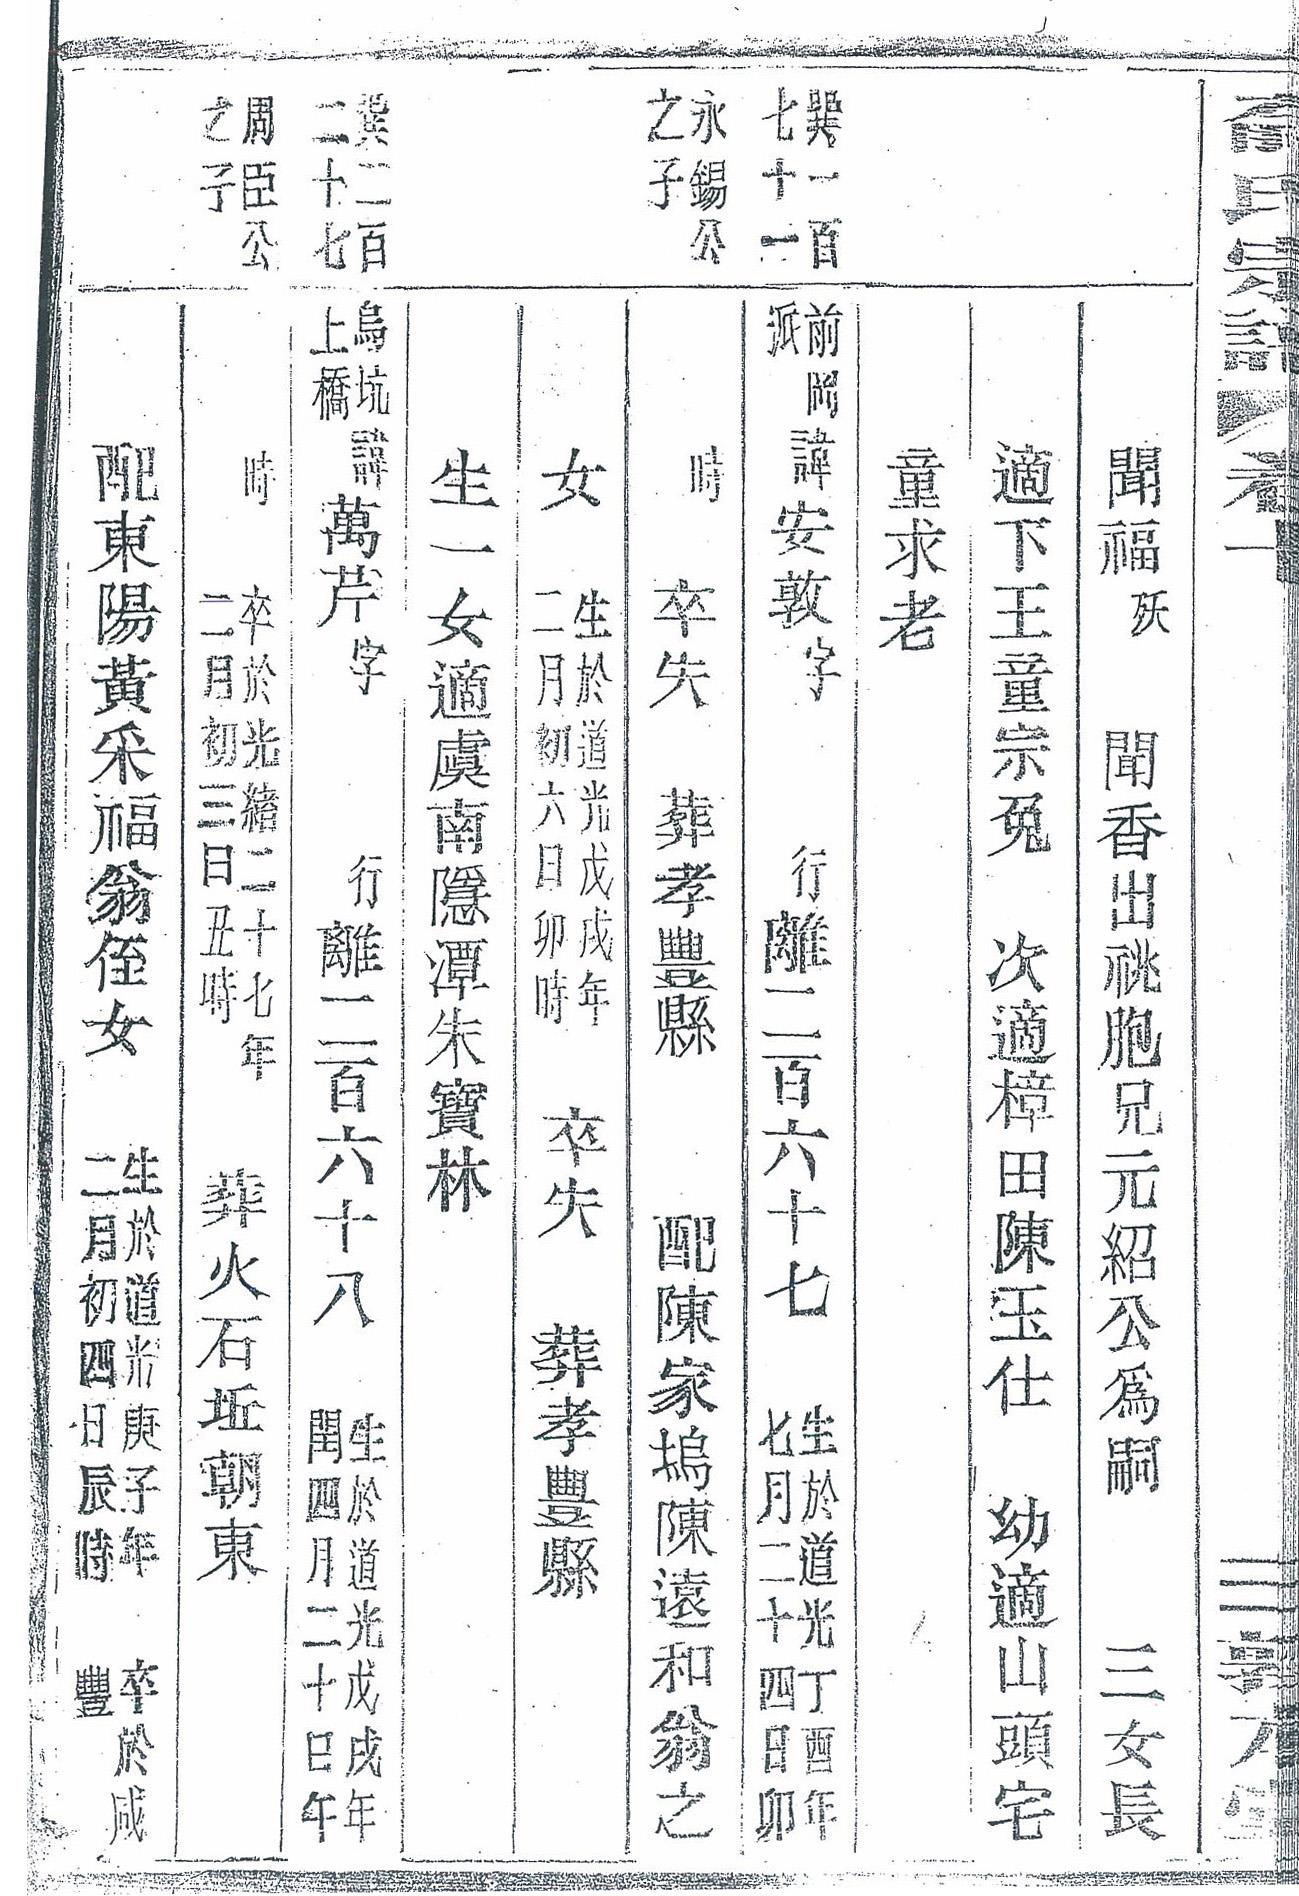 氏宗譜 卷十
聞福殀 聞香出祧胞兄元紹公爲嗣 三女長
適下王童宗兔 次適樟田陳玉仕 幼適山頭宅
童求老
巽一百
七十一
前岡
派
諱安敦字 行離二百六十七 生於道光丁酉年
七月二十四日卯
永錫公
之子
時 卒失 葬孝豐縣 配陳家塢陳遠和翁之
女 生於道光戊戌年
二月初六日卯時 卒失 葬孝豐縣
生一女適虞南隱潭朱寶林
巽二百
二十七
烏坑
上橋
諱萬芹字 行離二百六十八 生於道光戊戌年
閏四月二十日午
周臣公
之子
時 卒於光緒二十七年
二月初三日丑時 葬火石坵朝東
配東陽黃采福翁侄女 生於道光庚子年
二月初四日辰時 卒於咸
豐